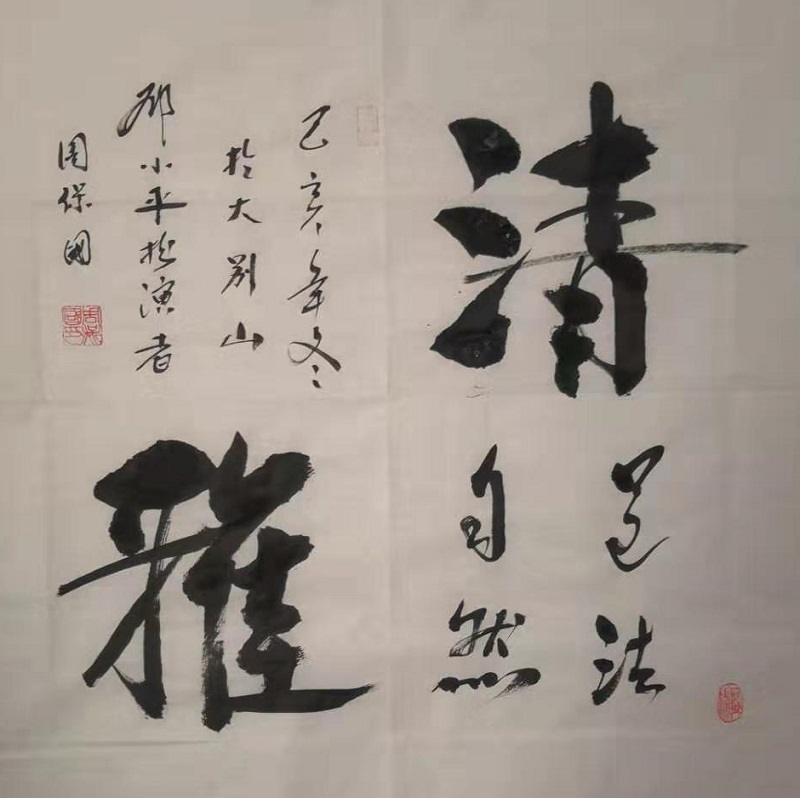 清
雅
道法
自然
己亥年冬
於大别山
邓小平扮演者
周保國